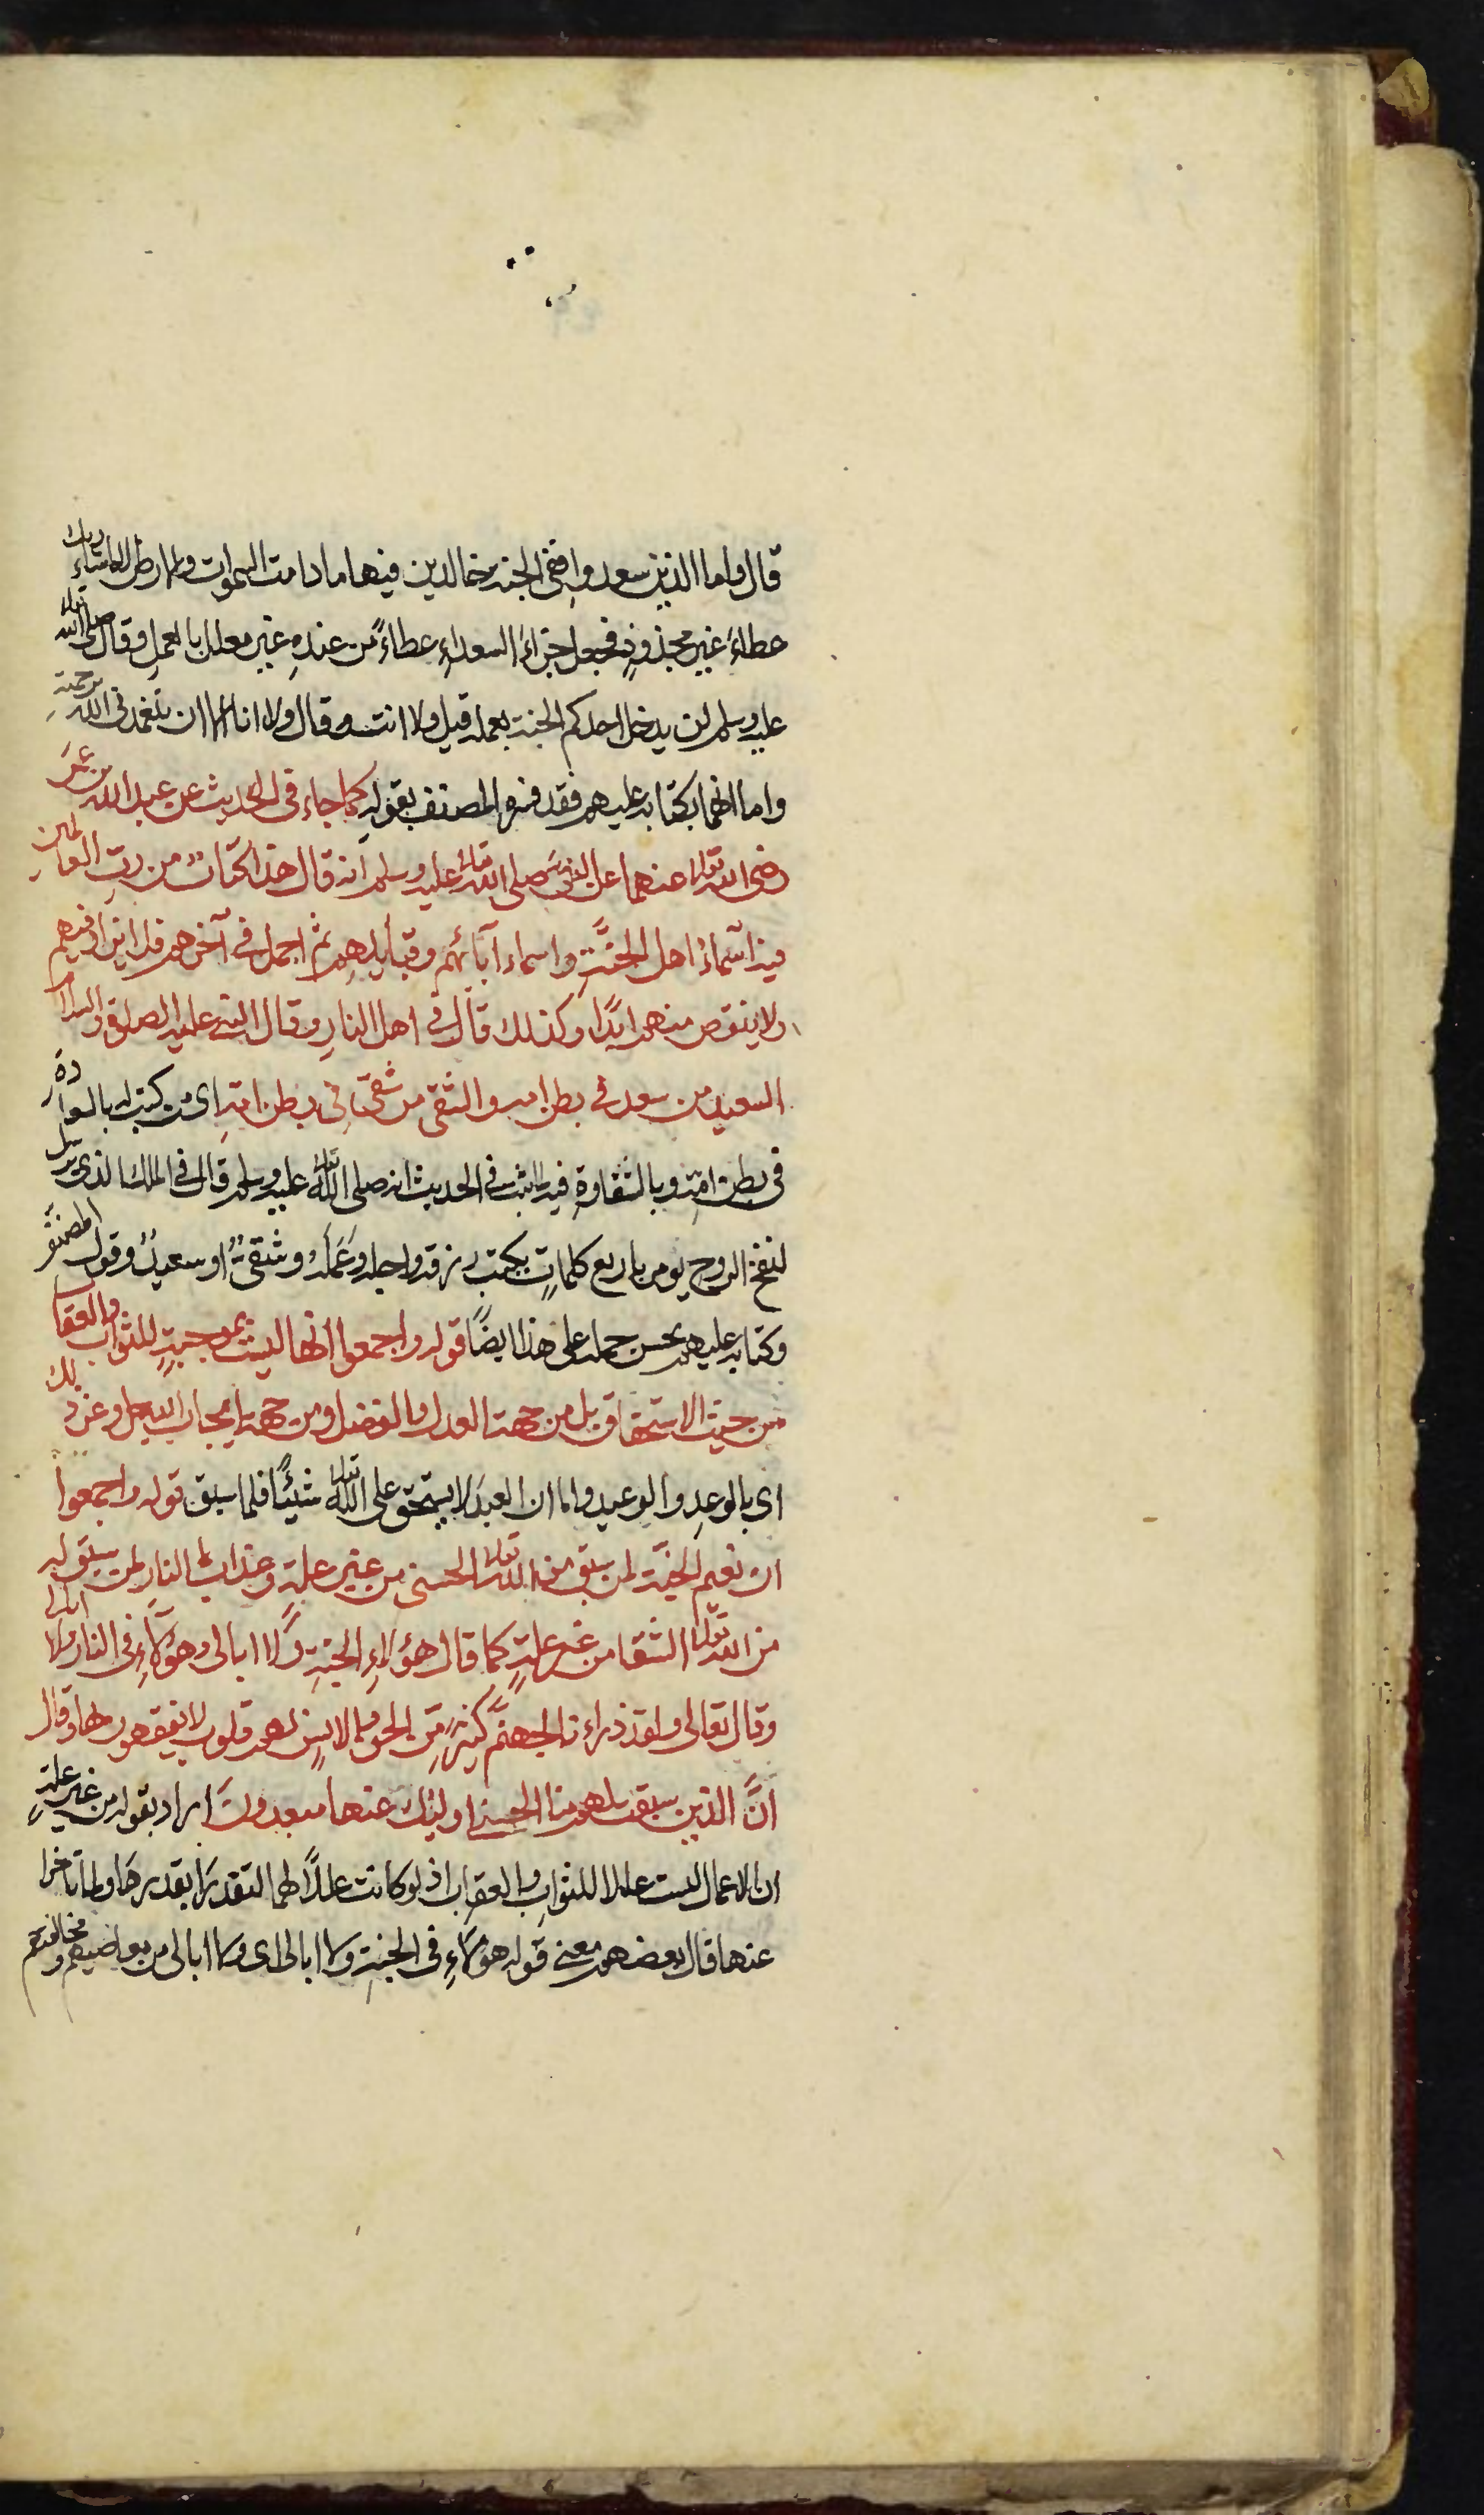 قال واما الذين سعدوا ففى الجنة خالدين فيها ما دامت السموات والارض الا ما شاء ربك
عطاء غير مجذوذ فجعل جزاء السعداء عطاءً من عنده غير معلل بالعمل وقال صلى الله تعالى
عليه وسلم لن يدخل احدكم الجنة بعمله قيل ولا انت وقال ولا انا الا ان يتغمدنى الله برحمته
واما انها بكتابه عليهم فقد فسره المصنف بقوله كما جاء فى الحديث عن عبد الله بن عمر
رضى الله تعالى عنهما عن النبى صلى الله تعالى عليه وسلم انه قال هذا كتاب من رب العالمين
فيه اسماء اهل الجنة واسماء آبائهم وقبايلهم ثم اجمل فى آخرهم فلا يزاد فيهم
ولا ينقص منهم ابدا وكذلك قال فى اهل النار وقال النبى عليه الصلوة والسلام
السعيد من سعد فى بطن امه والشقى من شقى فى بطن امه اى من كتب له بالسعادة
فى بطن امه وبالشقاوة فيه لما ثبت فى الحديث انه صلى الله تعالى عليه وسلم قال فى الملك الذى يرسل
لنفخ الروح يومر باربع كلمات يكتب رزقه واجله وعمله وشقى او سعيد وقول المصنف
وكتابه عليهم يحسن حمله على هذا ايضًا قوله واجمعوا انها ليست بموجبة للثواب والعقاب
من حيث الاستحقاق بل من جهة العدل والفضل ومن جهة ايجاب الله جل وعز ذلك
اى بالوعد والوعيد واما ان العبد لا يستحق على الله تعالى شيئًا فلما سبق قوله واجمعوا
ان نعيم الجنة لمن سبق من الله تعالى الحسنى من غير علة وعذاب النار لمن سبق له
من الله تعالى الشقا من غير علة كما قال هؤلاء الجنة ولا ابالى وهؤلاء فى النار ولا ابالى
وقال تعالى ولقد ذراءنا لجهنم كثيرًا من الجن والانس لهم قلوب لا يفقهون بها وقال
انَّ الذين سبقت لهم منا الحسنى اولئك عنها مبعدون اراد بقوله من غير علة
ان الاعمال ليست عللا للثواب والعقاب اذ لو كانت عللًا لهما لتقدرا بقدرها ولما تأخرا
عنها قال بعضهم معنى قوله هؤلاء فى الجنة ولا ابالى اى ولا ابالى من معاصيهم ومخالفتهم